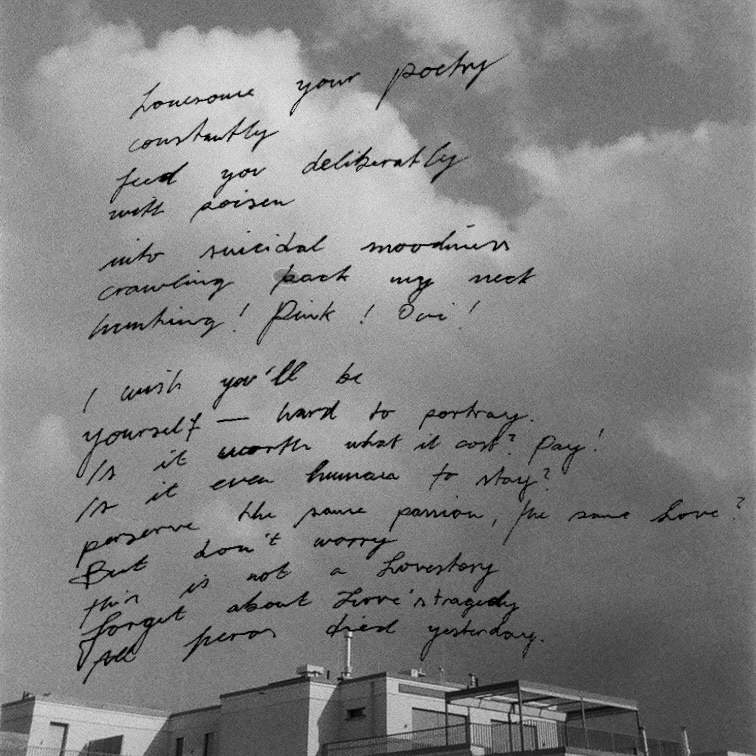 Lonesome your poetry
constantly
feed you deliberatly
with poisen
into suicidal moodiness
crawling back my neck
hunting! Pink! Oui!
I wish you'll be
yourself — hard to portray.
Is it worth what it cost? Pay!
Is it even humaia to stay?
perserve the same passion, the same Love?
But don't worry
this is not a Lovestory
forget about Love's tragedy
All died yesterday.